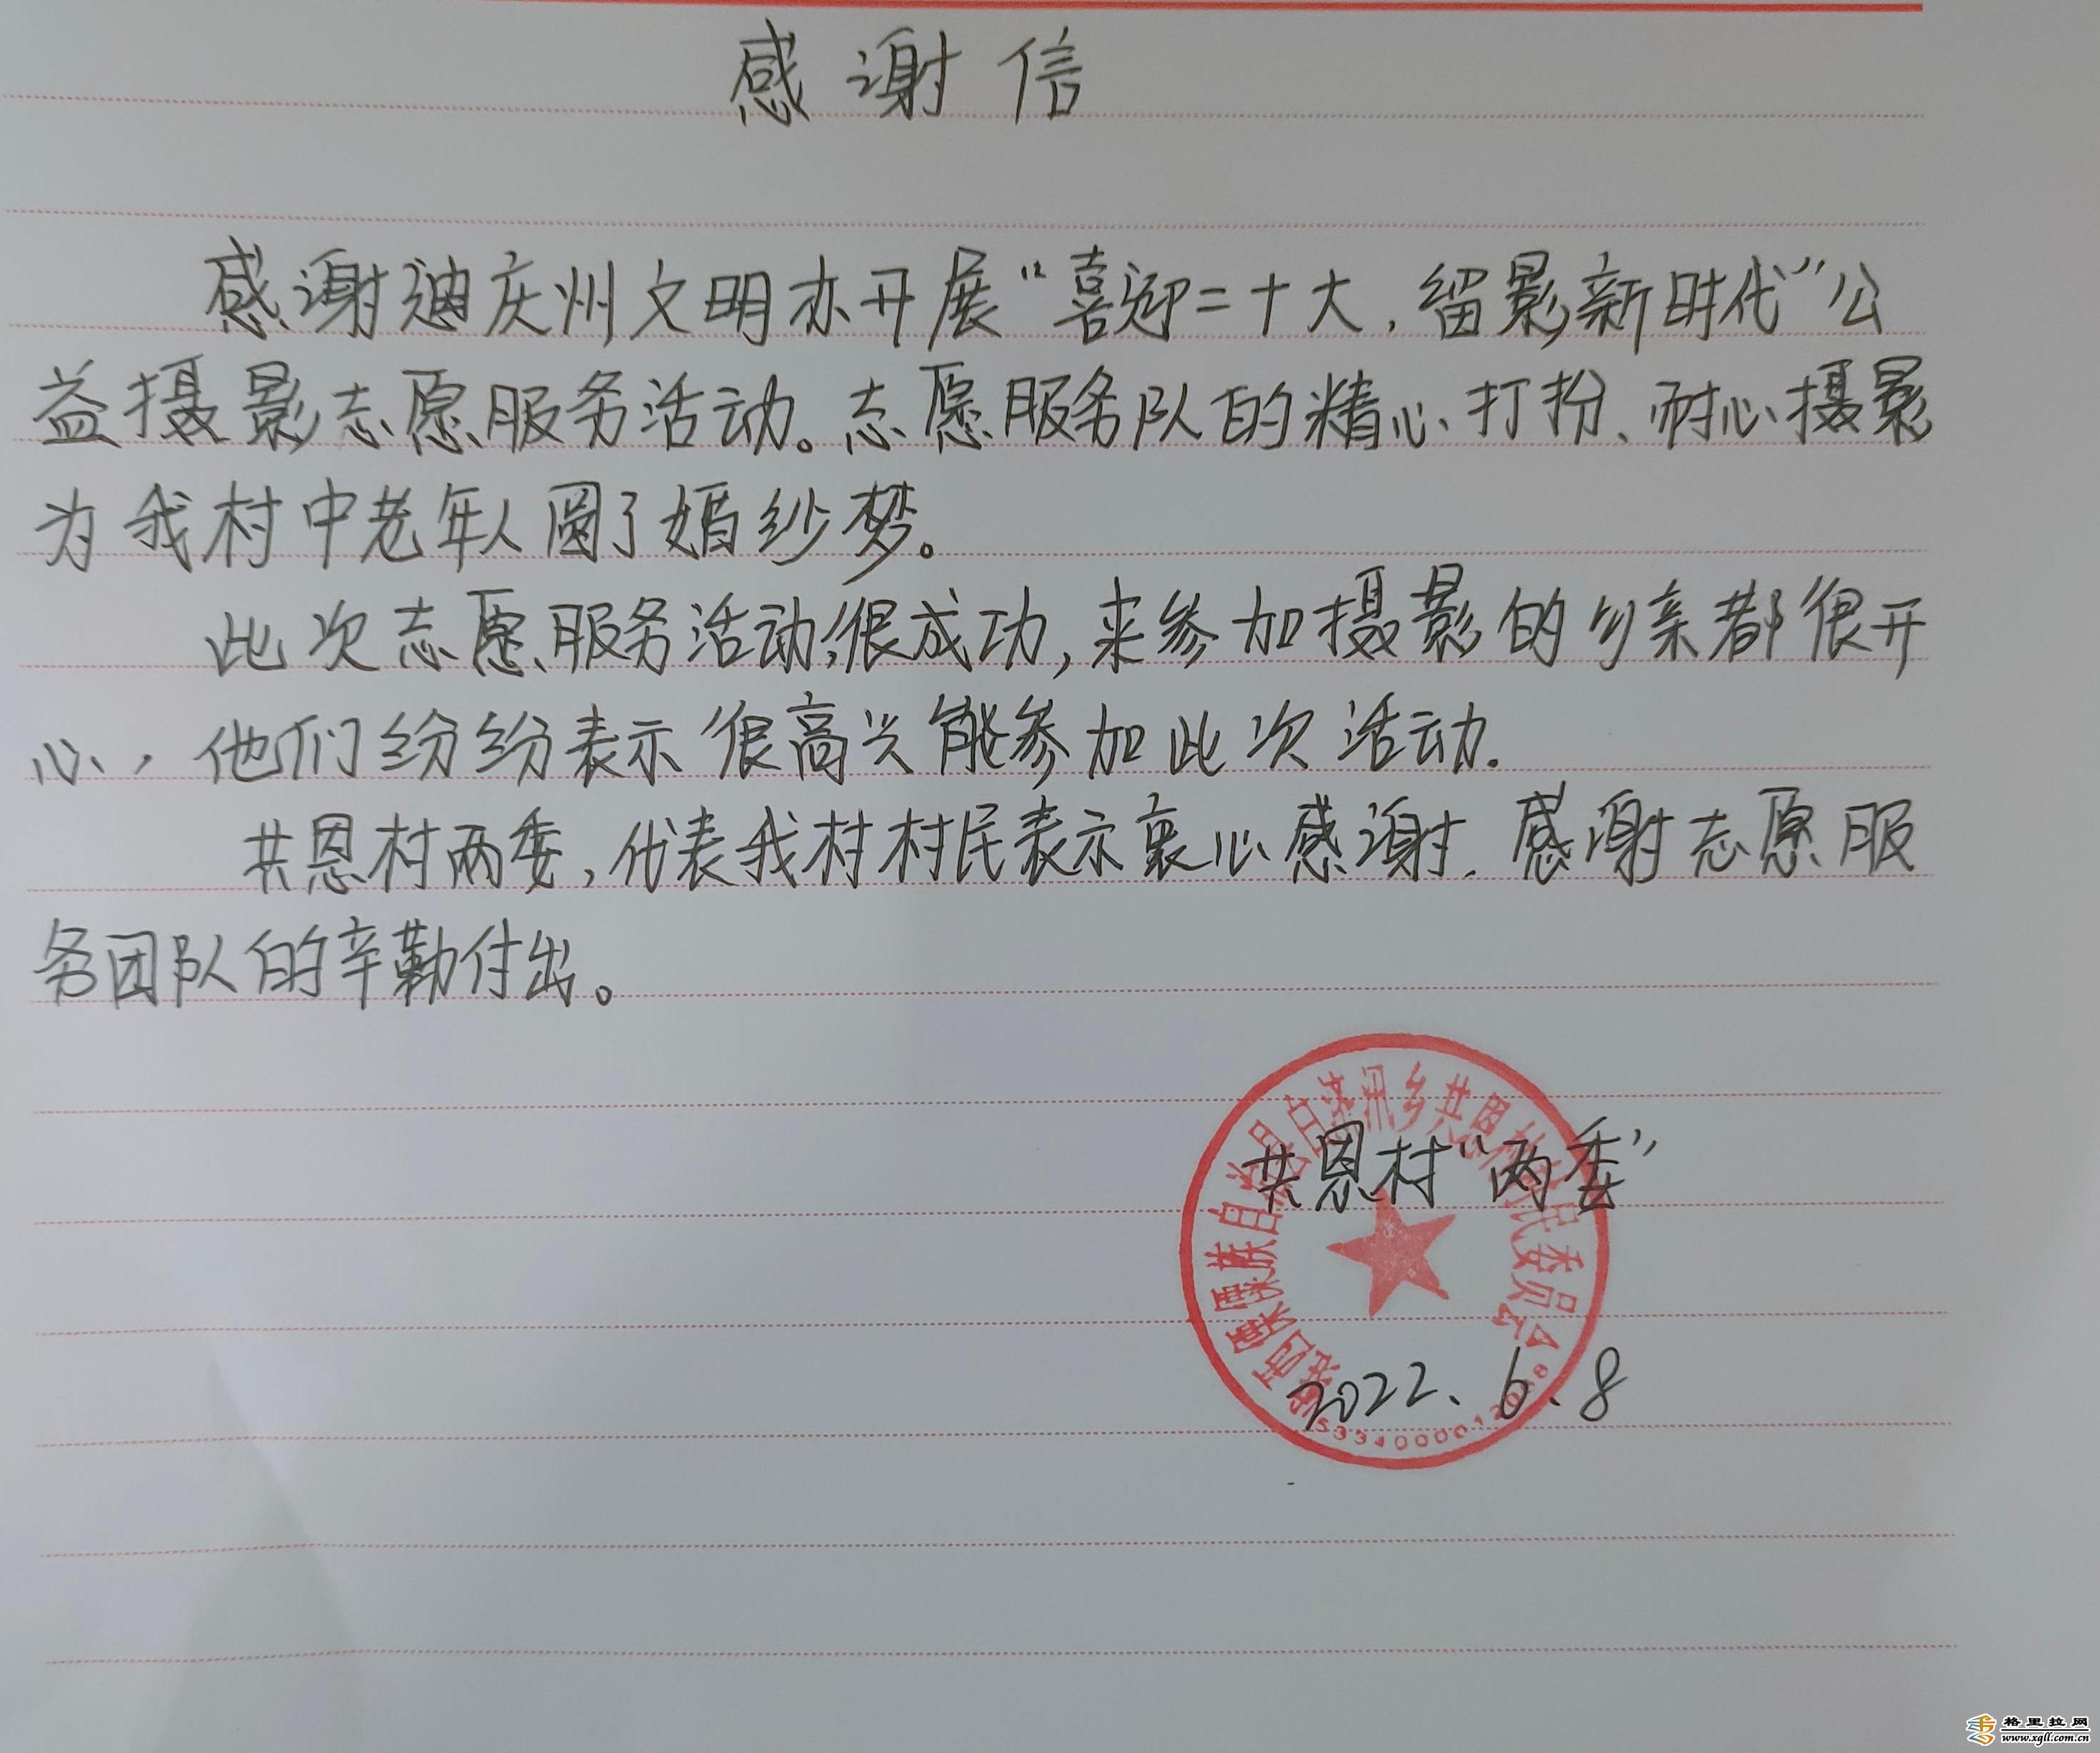 感谢信
感谢迪庆州文明办开展“喜迎二十大，留影新时代”公
益摄影志愿服务活动。志愿服务队的精心打扮、耐心摄影
为我村中老年人圆了婚纱梦。
此次志愿服务活动很成功，来参加摄影的乡亲都很开
心，他们纷纷表示很高兴能参加此次活动.
共恩村两委，代表我村村民表示衷心感谢. 感谢志愿服
务团队的辛勤付出。
维西傈僳族自治县白济汛乡共恩村村民委员会
共恩村“两委”
2022.6.8
格里拉网
www.xgll.com.cn